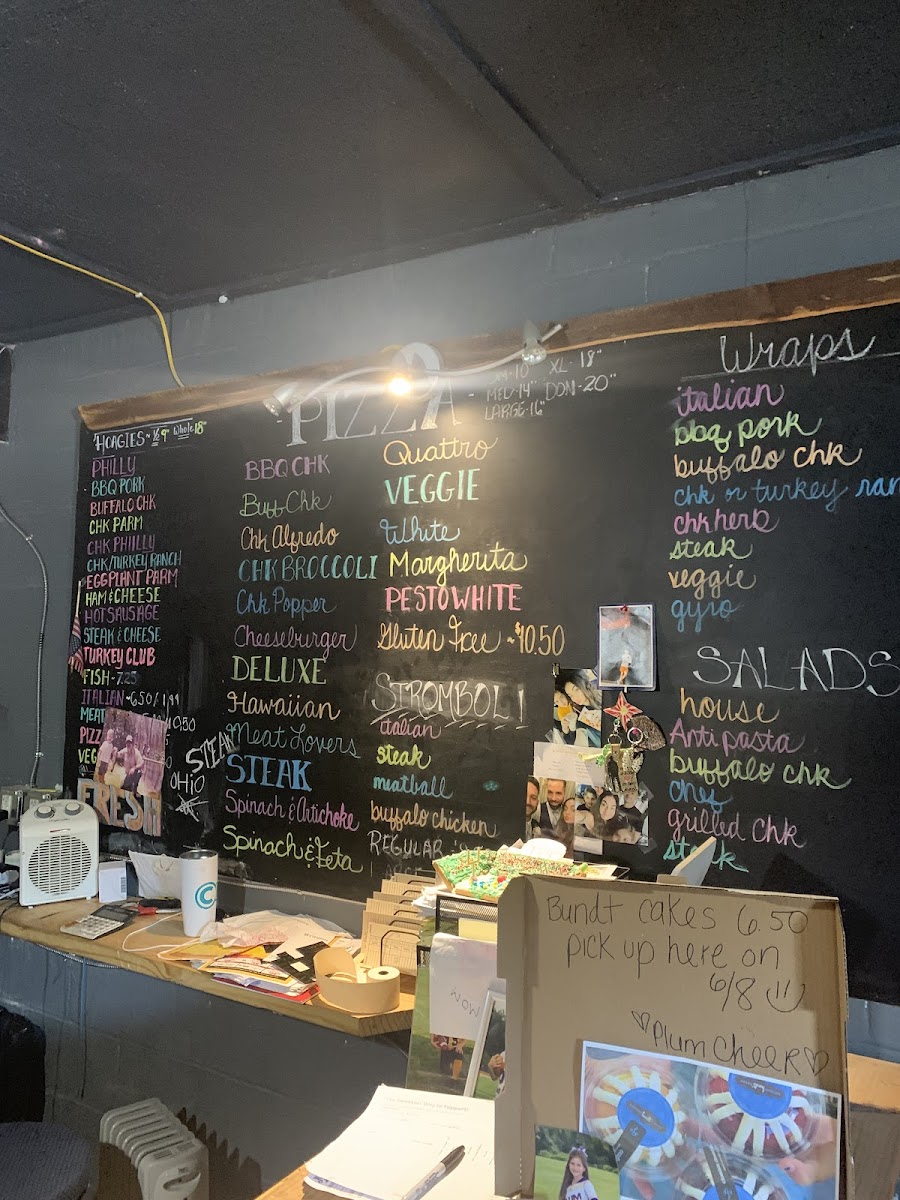 HOAGIES ~ ½ 9" Whole 18"
PHILLY
BBQ PORK
BUFFALO CHK
CHK PARM
CHK PHIILLY
CHK/TURKEY RANCH
EGGPLANT PARM
HAM & CHEESE
HOT SAUSAGE
STEAK & CHEESE
TURKEY CLUB
FISH - 7.25
ITALIAN
MEAT
PIZZ
VEG
STEAK
OHIO
FRESH
PIZZA -
10" XL - 18"
MED - 14" DON - 20"
LARGE - 16"
BBQ CHK
Buff Chk
Chk Alfredo
CHK BROCCOLI
Chk Popper
Cheeseburger
DELUXE
Hawaiian
Meat Lovers
STEAK
Spinach & Artichoke
Spinach & Feta
Quattro
VEGGIE
White
Margherita
PESTO WHITE
Gluten Free ~ $10.50
STROMBOLI
italian
steak
meatball
buffalo chicken
REGULAR
Wraps
italian
bbq pork
buffalo chk
chk or turkey ran
chk herb
steak
veggie
gyro
SALADS
house
Antipasta
buffalo chk
chef
grilled chk
steak
Bundt cakes 6.50
pick up here on
6/8
Plum Cheer